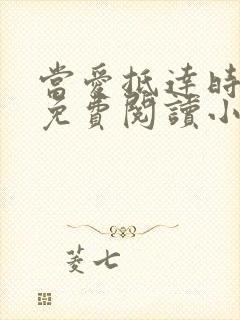 當愛抵達時
免費閱讀小
菱七